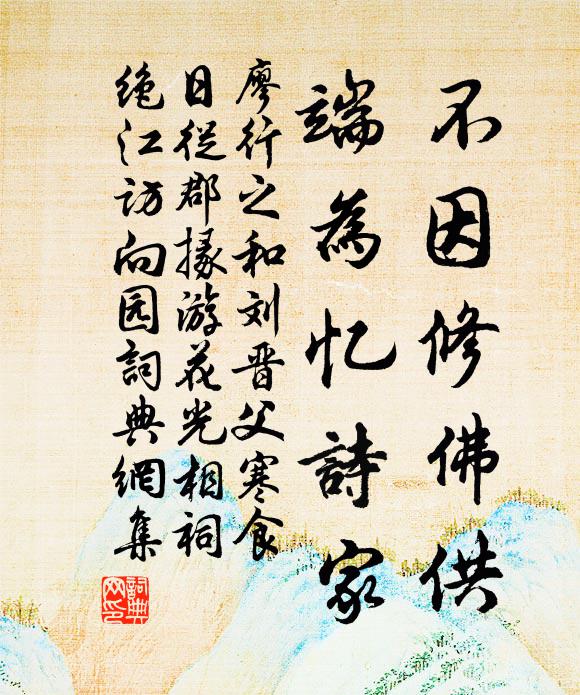 不因修佛供
端為忆詩家
廖行之和刘晋父寒食
日從郡掾游花光相祠
绝江访向园詞典網集
詞典
网印